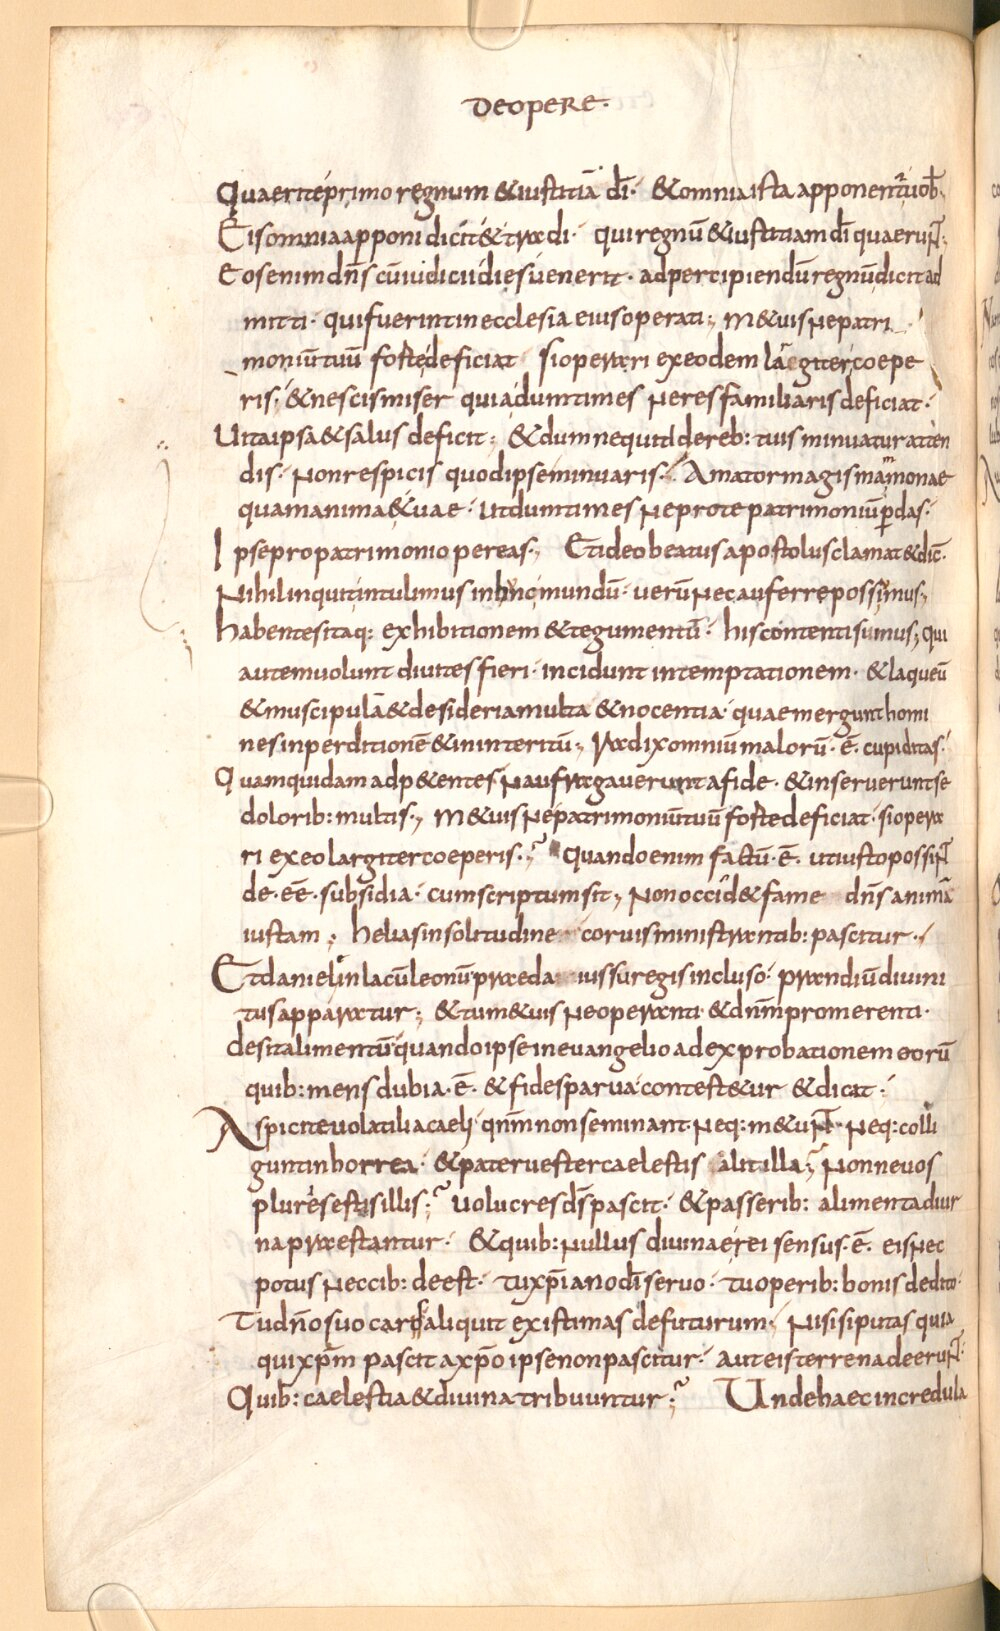 De opere·
Quaerite primo regnum & iustitiā dī· & omnia ista apponentur uob̄·
Eis omnia apponi dicit & tradi· qui regnū & iustitiam dī quaerunt;
Eos enim dn̄s cū iudicii dies uenerit· ad percipiendū regnū dicit ad
mitti· qui fuerint in ecclesia eius operati; M&uis ne patri
moniū tuū forte deficiat si operari ex eo dem largiter coepe
ris; & nescis miser quia dum times ne res familiaris deficiat·
Uita ipsa & salus deficit; & dum ne quid de reb: tuis minuatur atten
dis· Non respicis quod ipse minuaris· Amator magis mammonae
quam animae tuae· ut dum times ne pro te patrimoniū perdas·
Ipse pro patrimonio pereas; Et ideo beatus apostolus clamat & dic̄·
Nihil inquit intulimus in hunc mundū· uerū nec auferre possumus;
habentes itaq: exhibitionem & tegumentū· his contenti sumus; qui
autem uolunt diuites fieri· incidunt in temptationem· & laqueū
& muscipulā & desideria multa & nocentia· quae mergunt homi
nes in perditionē & in interitū; Radix omniū malorū· ē· cupiditas·
Quam quidam adp&entes naufragauerunt a fide· & inseruerunt se
dolorib: multis; M&uis ne patrimoniū tuū forte deficiat· si opera
ri ex eo largiter coeperis; Quando enim factū· ē· ut iusto possint
de·eē· subsidia· cum scriptum sit; Non occid& fame dn̄s animā
iustam; helias in solitudine coruis ministrantib: pascitur·
Et daniel in lacū leonū praeda iussu regis incluso· prandiū diuini
tus apparatur; & tu m&uis ne operanti & dn̄m promerenti·
desit alimentū quando ipse in euangelio ad exprobationem eorū
quib: mens dubia· ē· & fides parua contest&ur & dicat·
Aspicite uolatilia caeli qn̄m non seminant neq: m&unt· neq: colli
gunt in horrea· & pater uester caelestis alit illa; Nonne uos
plures estis illis; uolucres ds̄ pascit· & passerib: alimenta diur
na praestantur· & quib: nullus diuinae rei sensus· ē· eis nec
potus nec cib: deest· tu xp̄iano dī seruo· tu operib: bonis dedito·
Tu dn̄o suo caro aliquit existimas defuturum; Nisi si putas quia
qui xp̄m pascit a xp̄o ipse non pascitur· aut eis terrena deerunt·
Quib: caelestia & diuina tribuuntur; Unde haec incredula